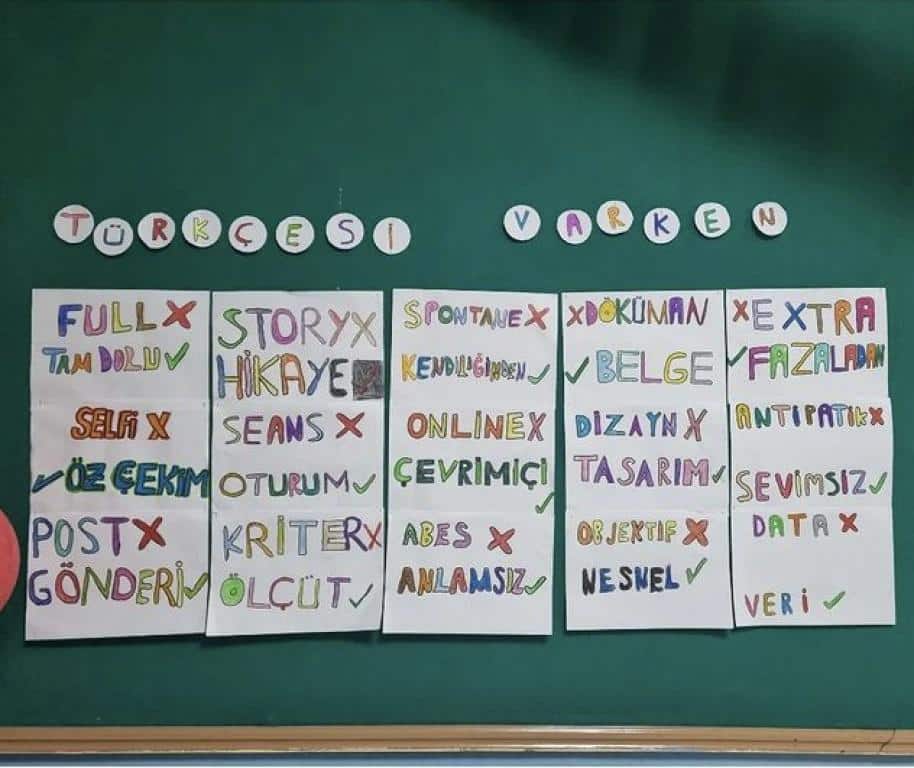 TÜRKÇESİ VARKEN
FULL X
TAM DOLU ✓
STORY X
HİKAYE
SPONTANE X
KENDİLİĞİNDEN ✓
X DÖKÜMAN
✓ BELGE
X EXTRA
✓ FAZALADAN
SELFİ X
✓ ÖZ ÇEKİM
SEANS X
OTURUM ✓
ONLINE X
ÇEVRİMİÇİ ✓
DİZAYN X
TASARIM ✓
ANTİPATİK X
SEVİMSİZ ✓
POST X
GÖNDERİ ✓
KRİTER X
ÖLÇÜT ✓
ABES X
ANLAMSIZ ✓
OBJEKTİF X
NESNEL ✓
DATA X
VERİ ✓